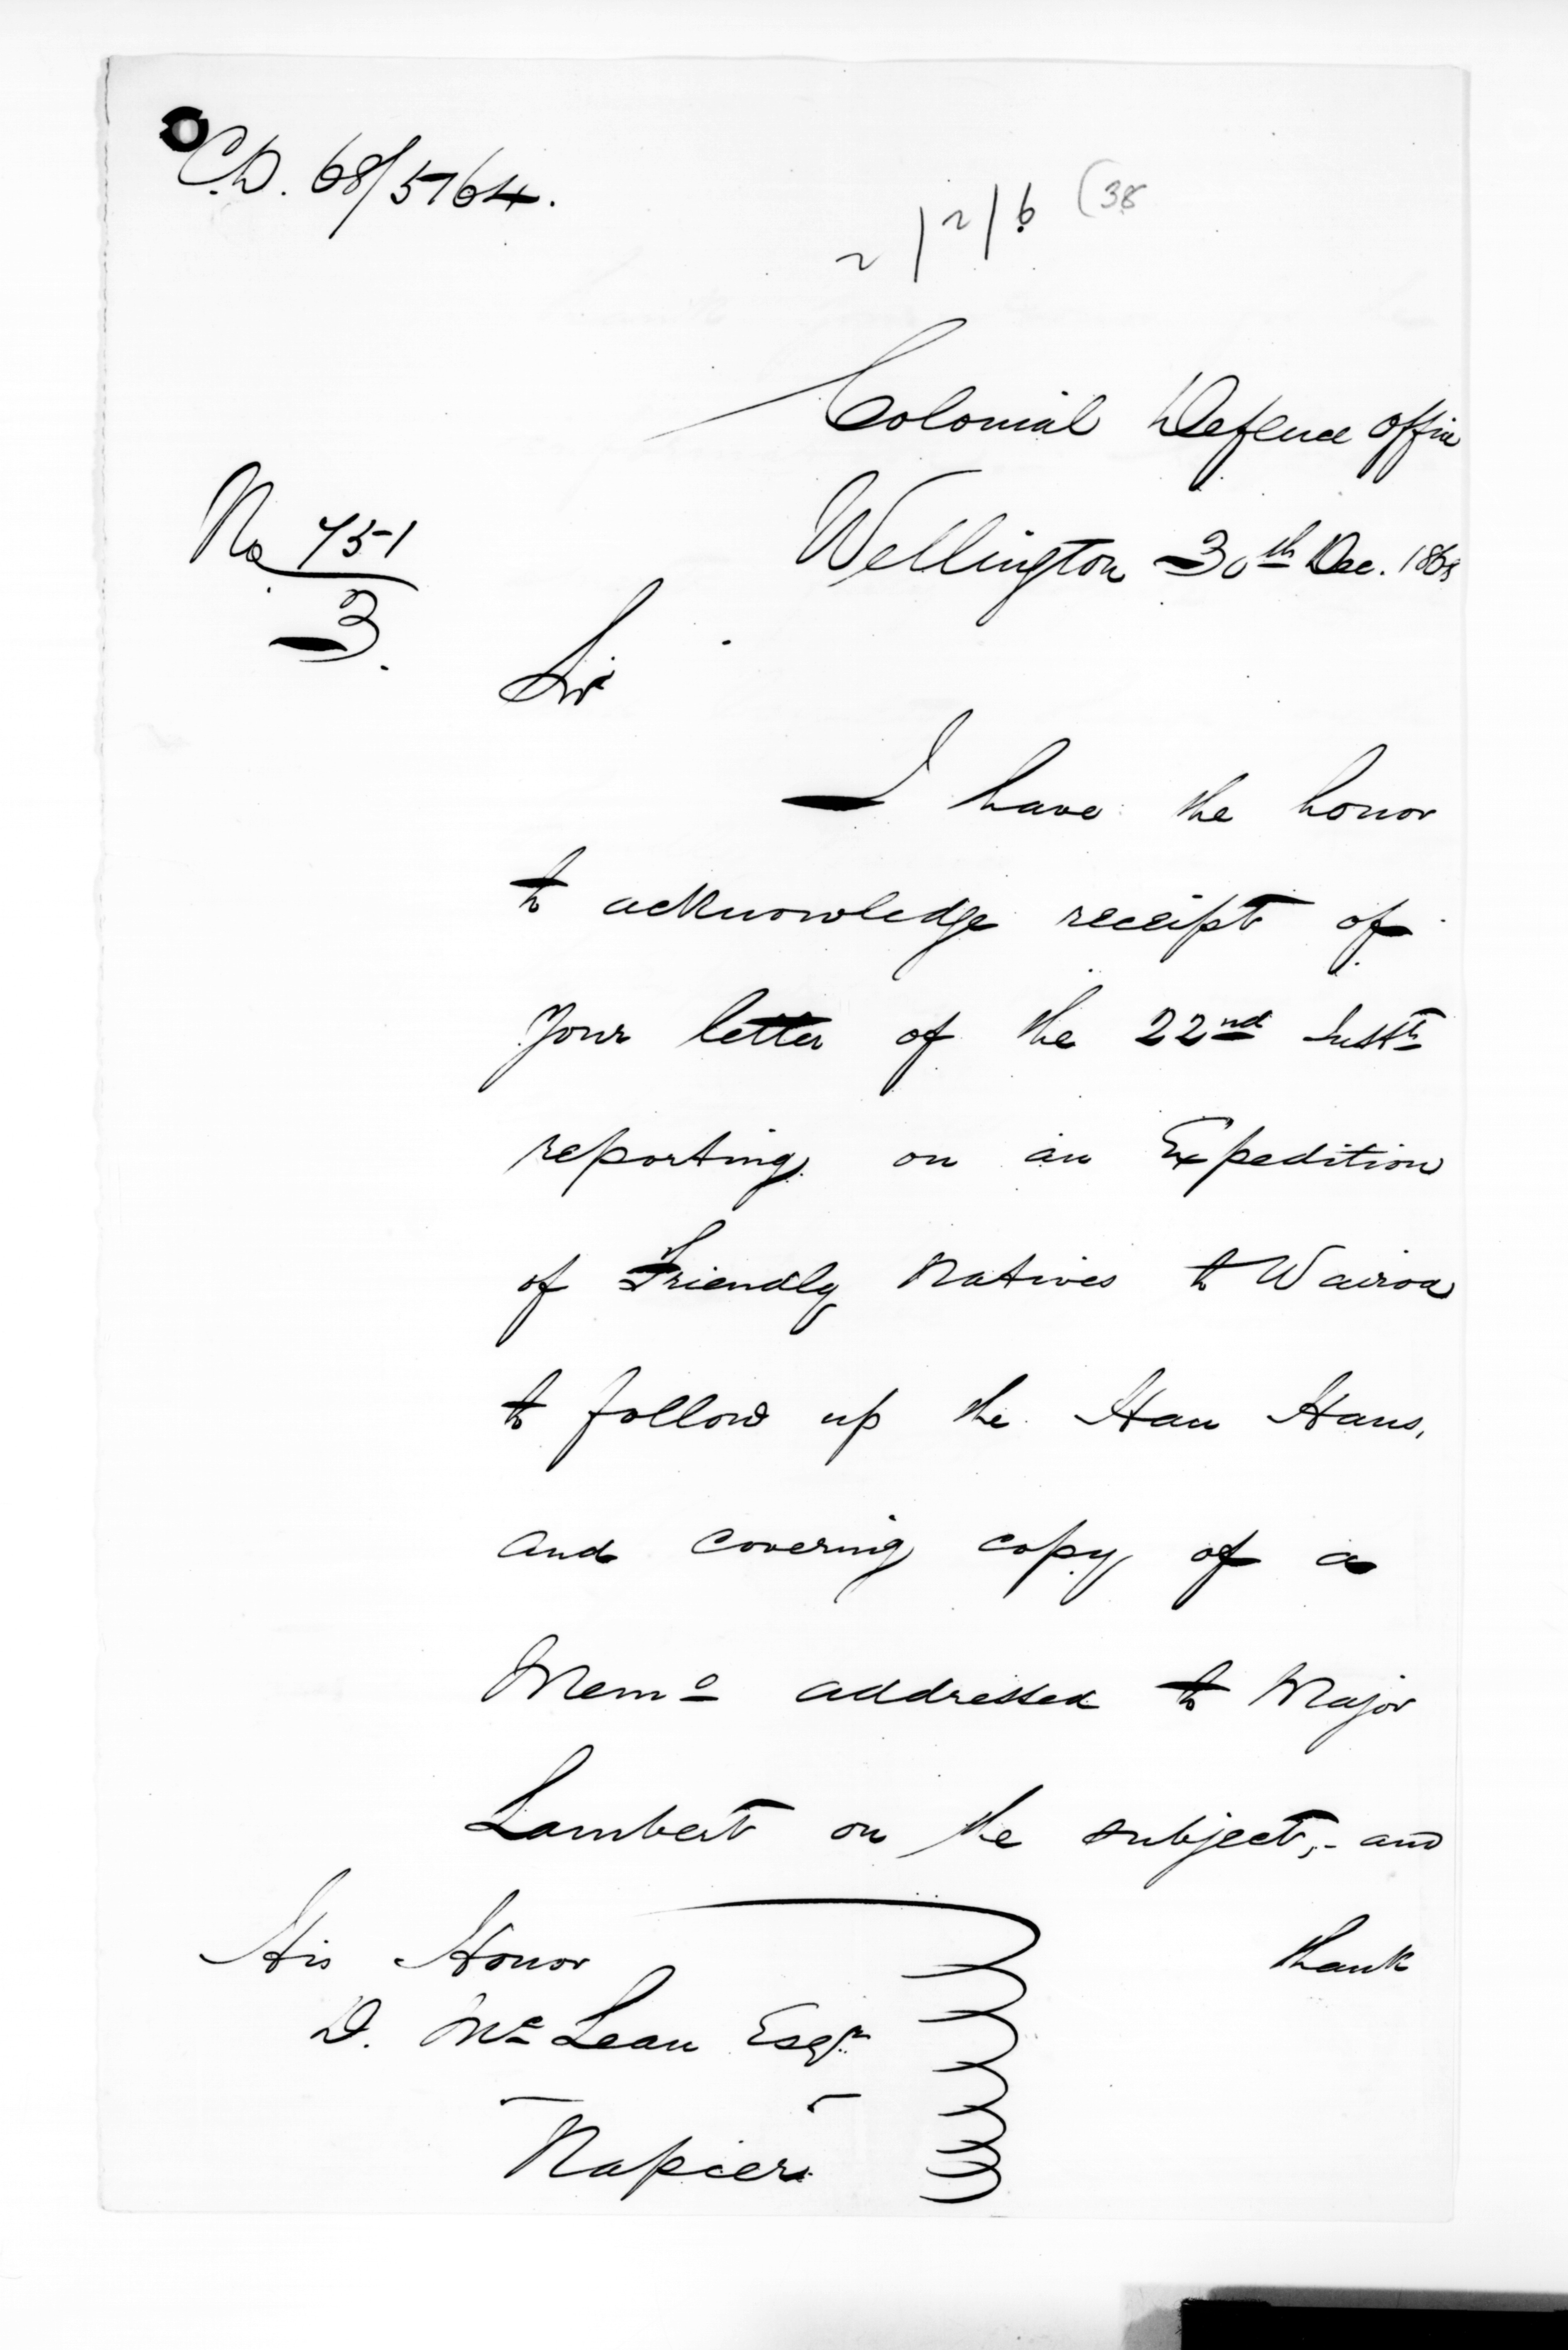 C.D. 68/5764.
2/2/6 (38
Colonial Defence Office
Wellington 30th Dec. 1868
No 751
3.
Sir
I have the honor
to acknowledge receipt of
your letter of the 22nd Instt
reporting on an Expedition
of Friendly Natives to Wairoa
to follow up the Hau Haus,
and covering copy of a
Memo addressed to Major
Lambert on the subject, - and
thank
His Honor
D. McLean Esqr
Napier